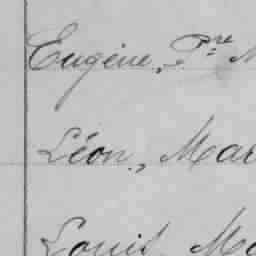 Eugène, Pre M
Léon, Mar
Louis Ma